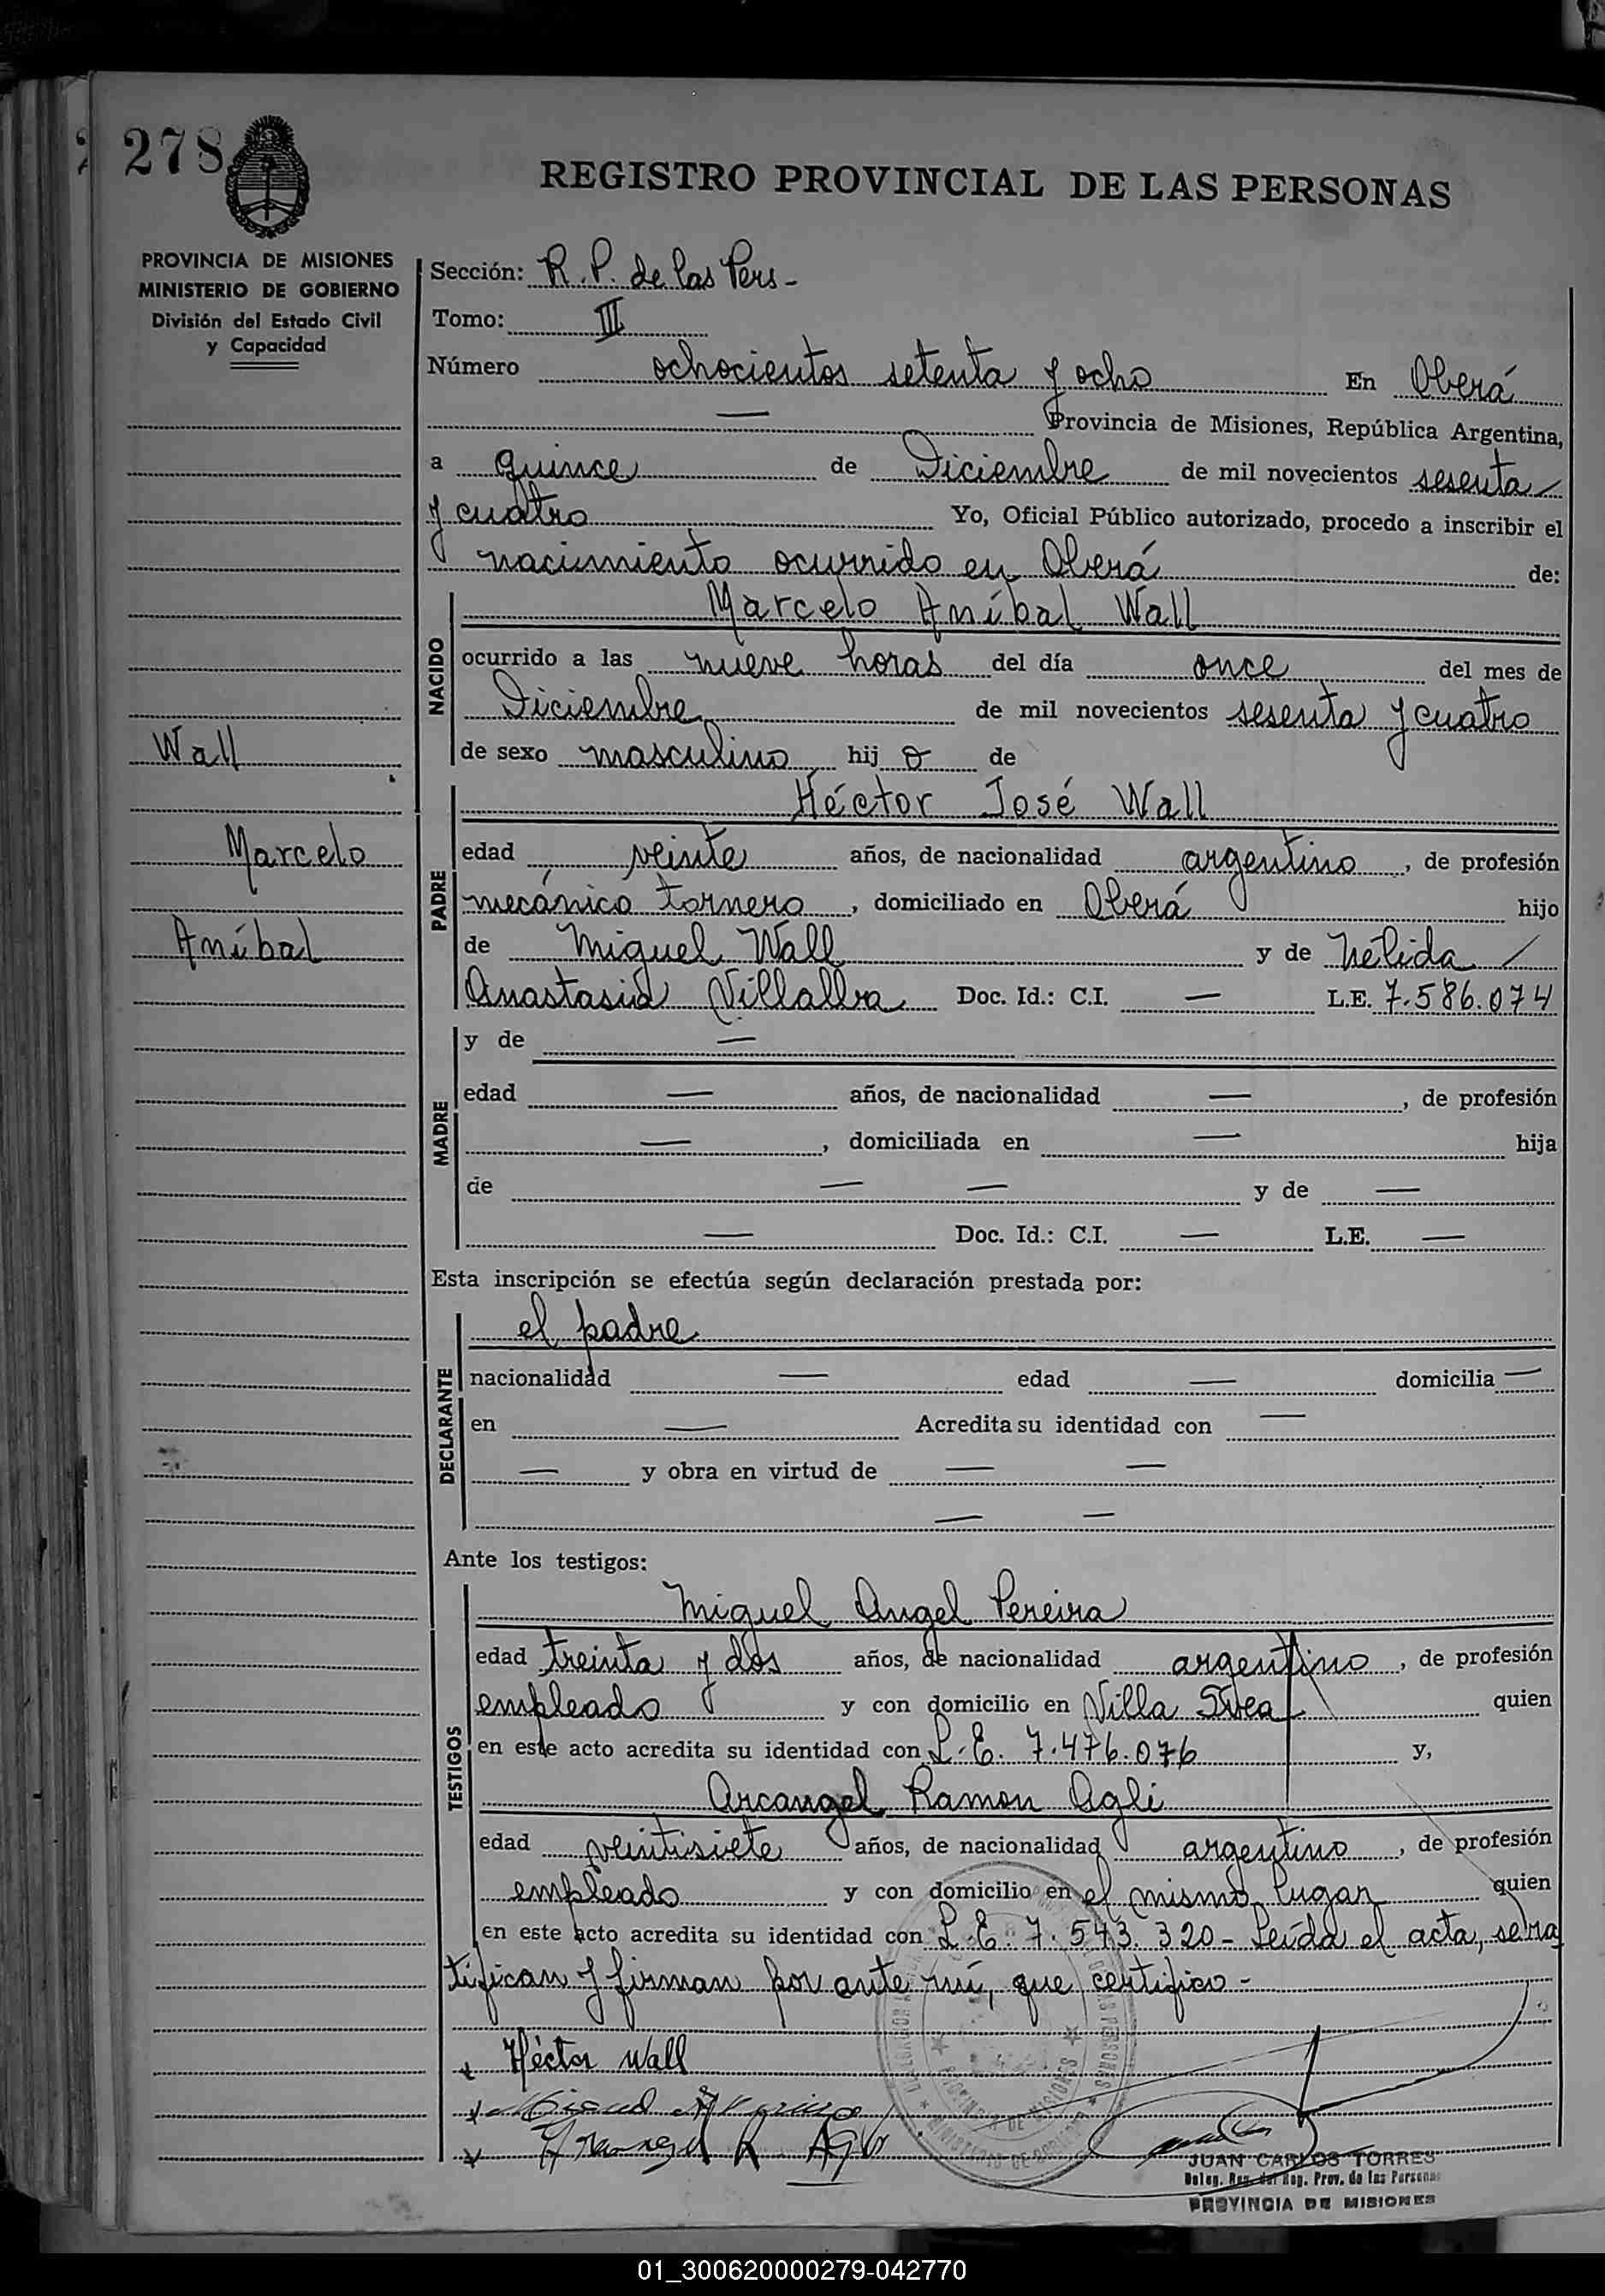 278
REGISTRO PROVINCIAL DE LAS PERSONAS
PROVINCIA DE MISIONES
MINISTERIO DE GOBIERNO
División del Estado Civil
y Capacidad
Sección: R. P. de las Pers-
Tomo: III
Número ochocientos setenta y ocho En Oberá
— Provincia de Misiones, República Argentina,
a quince de Diciembre de mil novecientos sesenta
y cuatro Yo, Oficial Público autorizado, procedo a inscribir el
nacimiento ocurrido en Oberá de:
NACIDO
Marcelo Aníbal Wall
ocurrido a las nueve horas del día once del mes de
Diciembre de mil novecientos sesenta y cuatro
de sexo masculino hijo de
Wall
Marcelo
Aníbal
PADRE
Héctor José Wall
edad veinte años, de nacionalidad argentino, de profesión
mecánico tornero, domiciliado en Oberá hijo
de Miguel Wall y de Nélida
Anastasia Villalba Doc. Id.: C.I. — L.E. 7.586.074
MADRE
y de —
edad — años, de nacionalidad —, de profesión
—, domiciliada en — hija
de — — y de —
— Doc. Id.: C.I. — L.E. —
Esta inscripción se efectúa según declaración prestada por:
DECLARANTE
el padre
nacionalidad — edad — domicilia —
en — Acredita su identidad con —
— y obra en virtud de — —
— —
Ante los testigos:
TESTIGOS
Miguel Angel Pereira
edad treinta y dos años, de nacionalidad argentino, de profesión
empleado y con domicilio en Villa Svea quien
en este acto acredita su identidad con L.E. 7.476.076 y,
Arcangel Ramon Agli
edad veintisiete años, de nacionalidad argentino, de profesión
empleado y con domicilio en el mismo lugar quien
en este acto acredita su identidad con L.E. 7.543.320- Leída el acta, se ra
tifican y firman por ante mí, que certifico-
Héctor Wall
JUAN CARLOS TORRES
Deleg. Reg. del Reg. Prov. de las Personas
PROVINCIA DE MISIONES
01_300620000279-042770